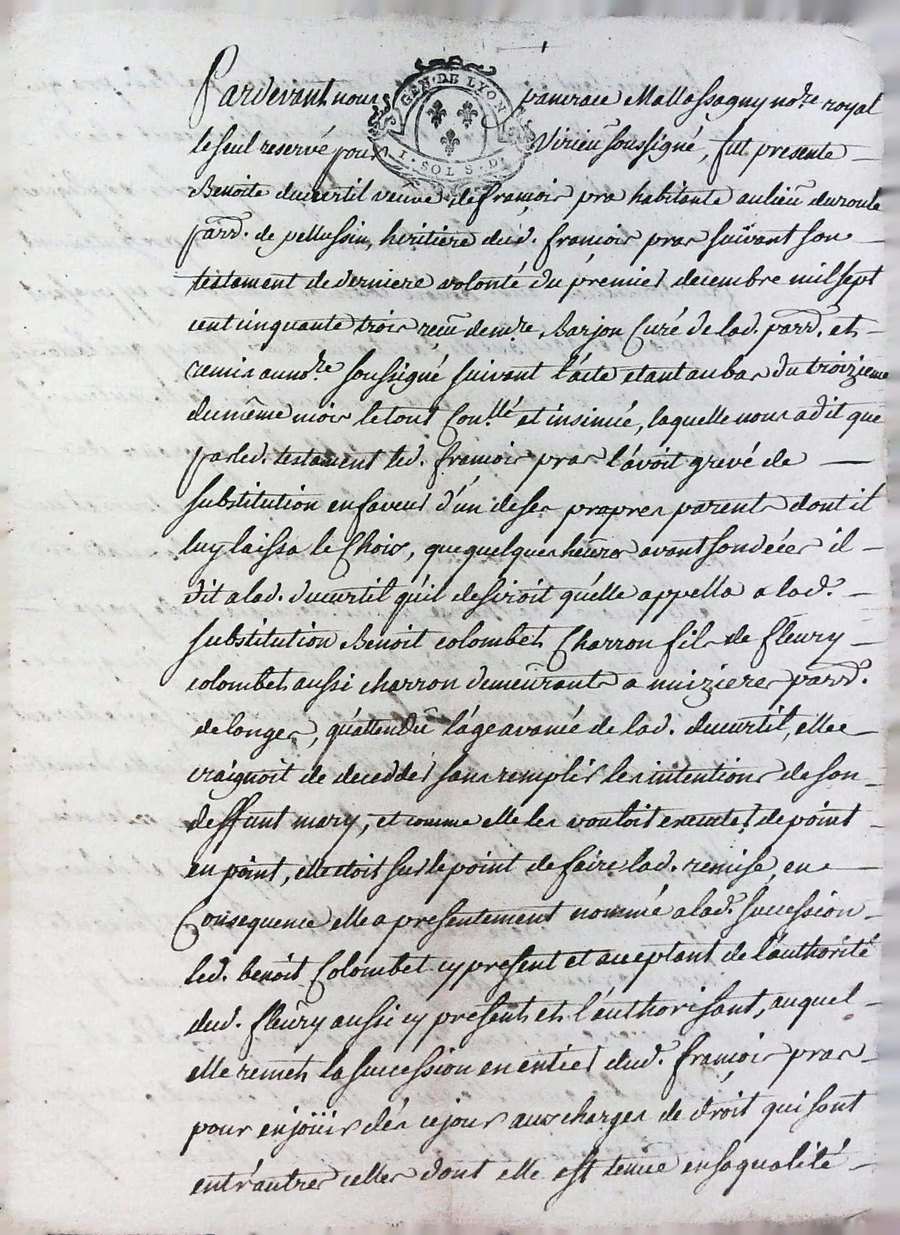 Pardevant nous pancrace Mallassagny no.re royal
GEN. DE LYON
I. SOL S. D.
le seul reservé pour Virieu soussigné, fut presente
Benoite ducurtil veuve de françois pra habitante au lieu du roule
parr. de pellussin, heritière dud. françois pras suivant son
testament de derniere volonté du premier decembre mil sept
cent cinquante trois reçu de m.re Barjon Curé de lad. parr. et
remis au no.re soussigné suivant l'acte etant au bas du troizieme
du même mois le tout Con.llé et insinué, laquelle nous a dit que
par led. testament led. françois pras l'avoit grevé de
substitution en faveur d'un de ses propres parents dont il
luy laissa le Choix, que quelques heures avant son décès il
dit a lad. ducurtil qu'il desiroit qu'elle appella a lad.
substitution Benoit colombet Charron fils de fleury
colombet aussi charron demeurants a mizieres parr.
de longes, qu'attendu l'age avancé de lad. ducurtil, elle
craignoit de decedder sans remplir les intentions de son
deffunt mary, et comme elle les vouloit executer de point
en point, elle étoit sur le point de faire lad. remise, en
Consequence elle a presentement nommé a lad. succession
led. benoit Colombet cy present et acceptant de l'authorité
dud. fleury aussi cy present et l'authorisant, auquel
elle remet la succession en entier dud. françois pras
pour en joüir dés ce jour aux charges de droit qui sont
entr'autres celles dont elle est tenüe en sa qualité